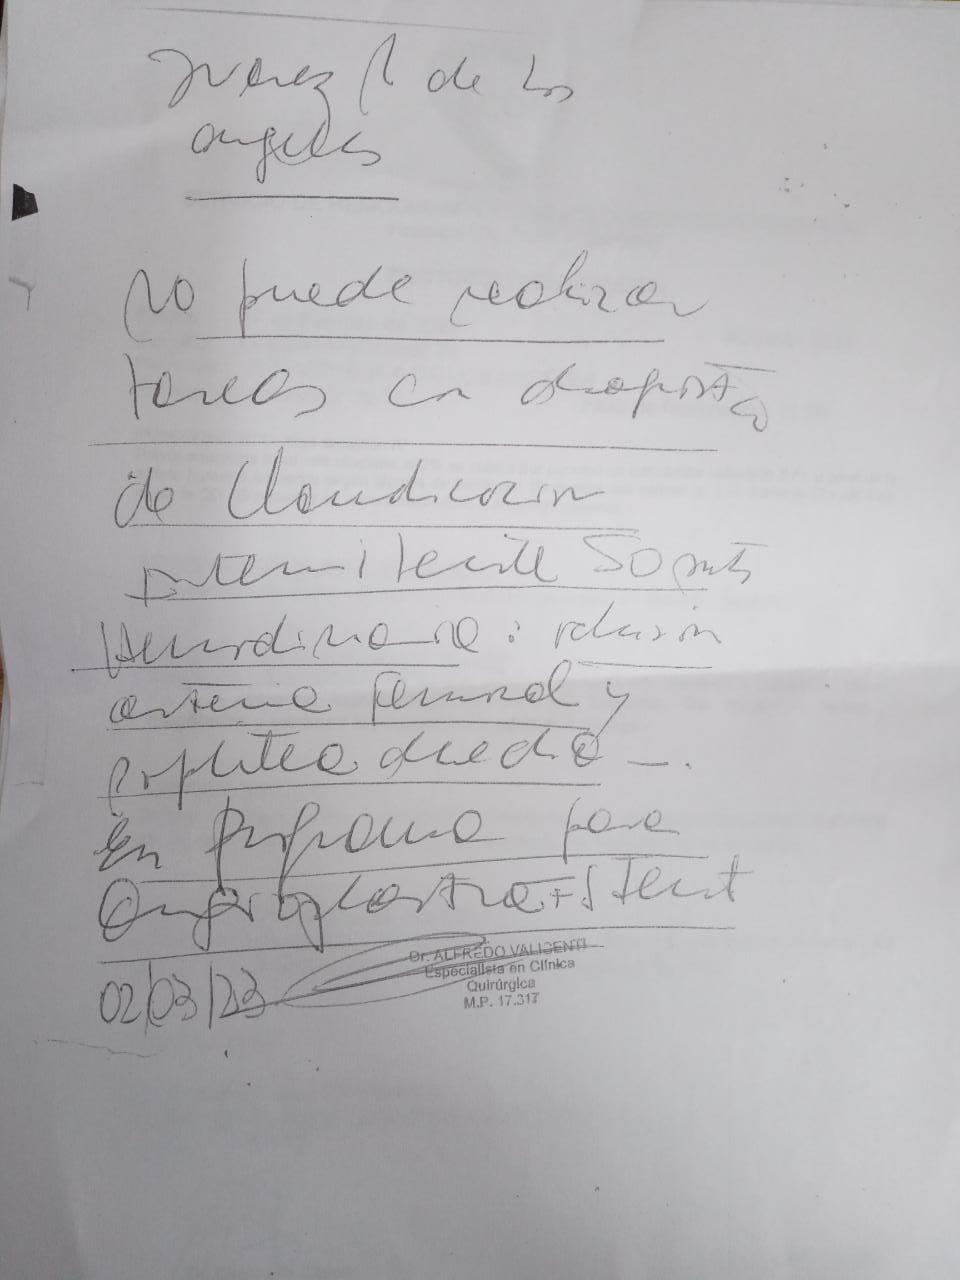 Juarez R de los
angeles
No puede realizar
tareas en diagnostico
de Claudicacion
intermitente 50 mts
arteria femoral y
poplitea
En programa para
Angioplastia + Stent
02/03/23
Dr. ALFREDO VALICENTI
Especialista en Clínica
Quirúrgica
M.P. 17.317